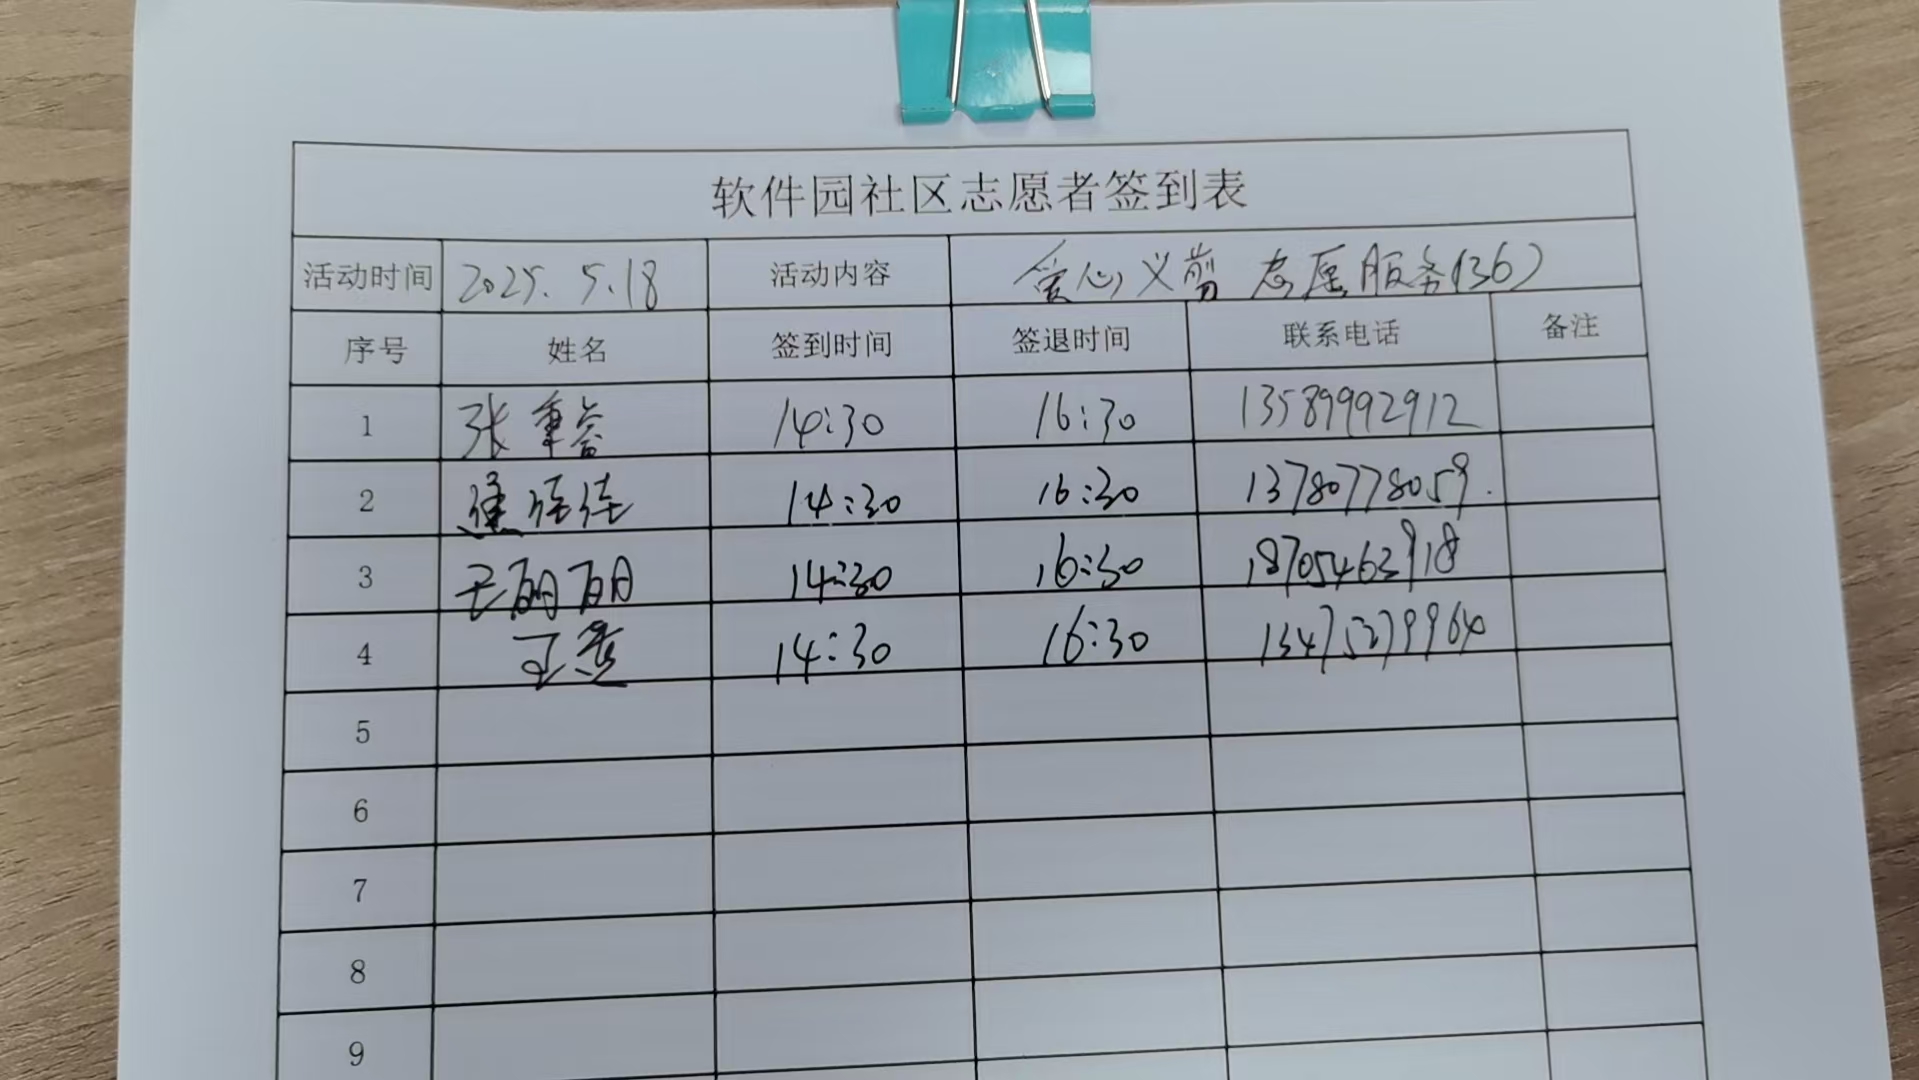 软件园社区志愿者签到表
活动时间 2025.5.18 活动内容 爱心义剪 志愿服务(36)
序号 姓名 签到时间 签退时间 联系电话 备注
1 张重谷 14:30 16:30 13589992912
2 14:30 16:30 13780778059.
3 王丽丽 14:30 16:30 18705463918
4 14:30 16:30 13475279964
5
6
7
8
9